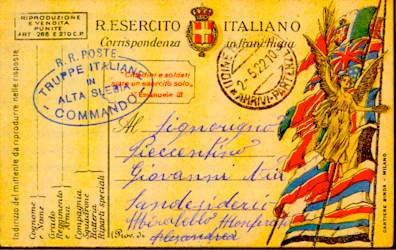 RIPRODUZIONE
E VENDITA
PUNITE
ART 288 E 210 C.P.
R. ESERCITO ITALIANO
Corrispondenza in franchigia
R. R. POSTE
TRUPPE ITALIANE
IN
ALTA SLESIA
COMMANDO
Cittadini e soldati
siate un esercito solo.
V. Emanuele III
2-5 22 10
ARRIVI-PARTENZE
Al Signorigno
Pieccentino
Giovanni Via
Sandesiderio
Mirabello Monferrato
(Prov. di Alessandria
Indirizzo del mittente da riprodurre nelle risposte
Cognome
Nome
Grado
Reggimento
Arma
Compagnia
Squadrone
Batteria
Riparti speciali
CARTIERE BINDA - MILANO